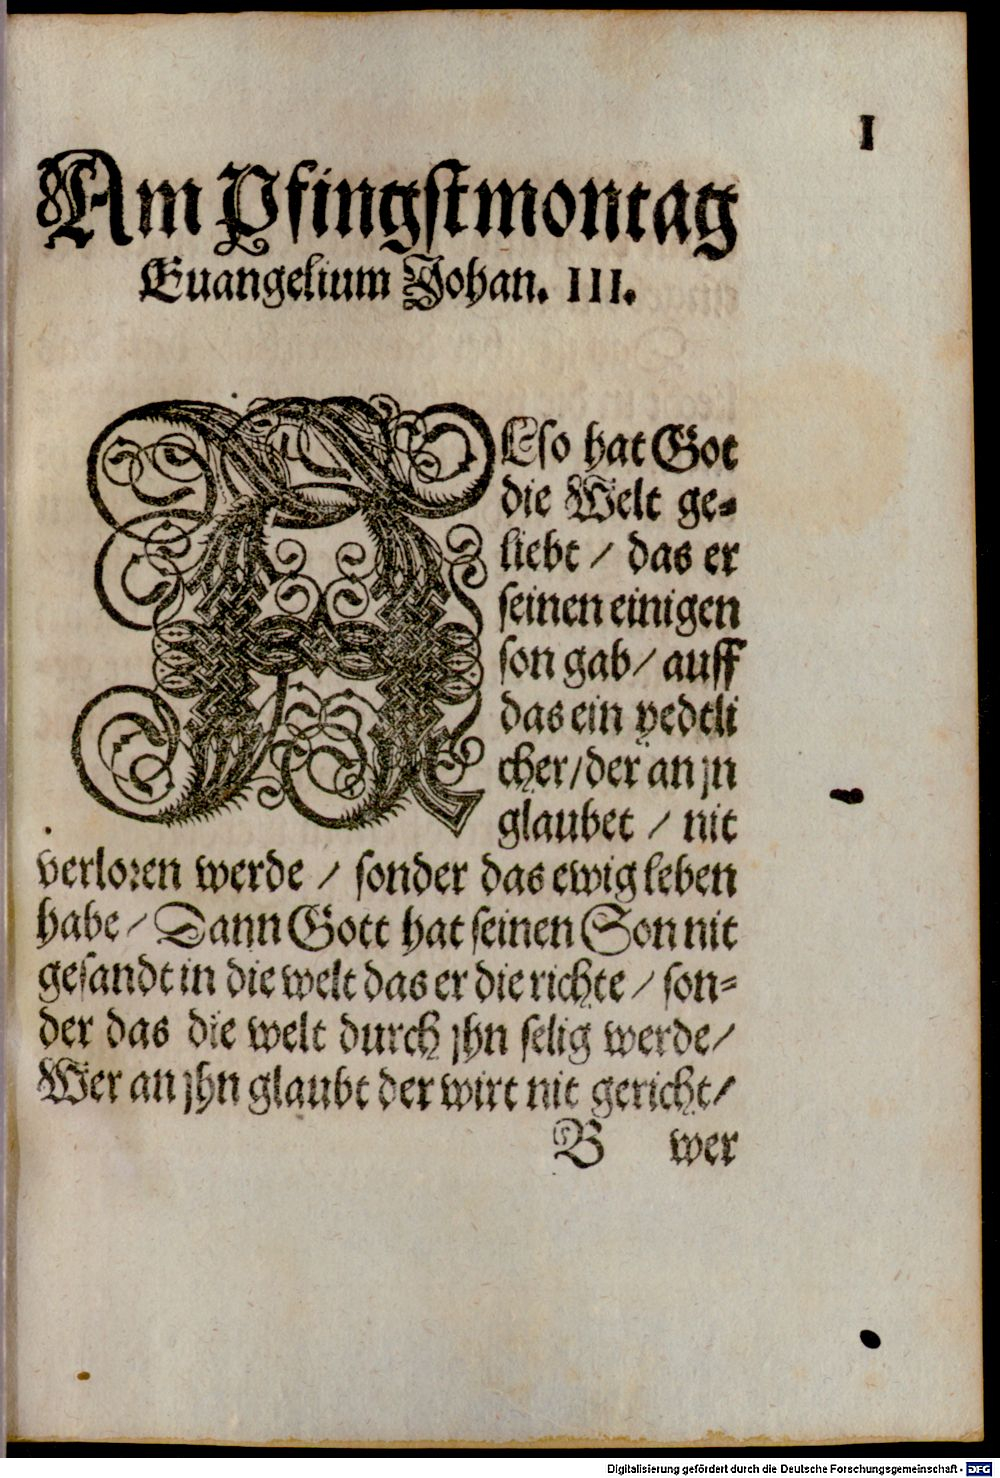 I
Am Pfingstmontag
Euangelium Johan. III.
ALso hat Got
die Welt ge⸗
liebt / das er
seinen einigen
son gab / auff
das ein yedtli
cher / der an jn
glaubet / nit
verloren werde / sonder das ewig leben
habe / Dann Gott hat seinen Son nit
gesandt in die welt das er die richte / son⸗
der das die welt durch jhn selig werde /
Wer an jhn glaubt der wirt nit gericht /
B wer
Digitalisierung gefördert durch die Deutsche Forschungsgemeinschaft - DFG